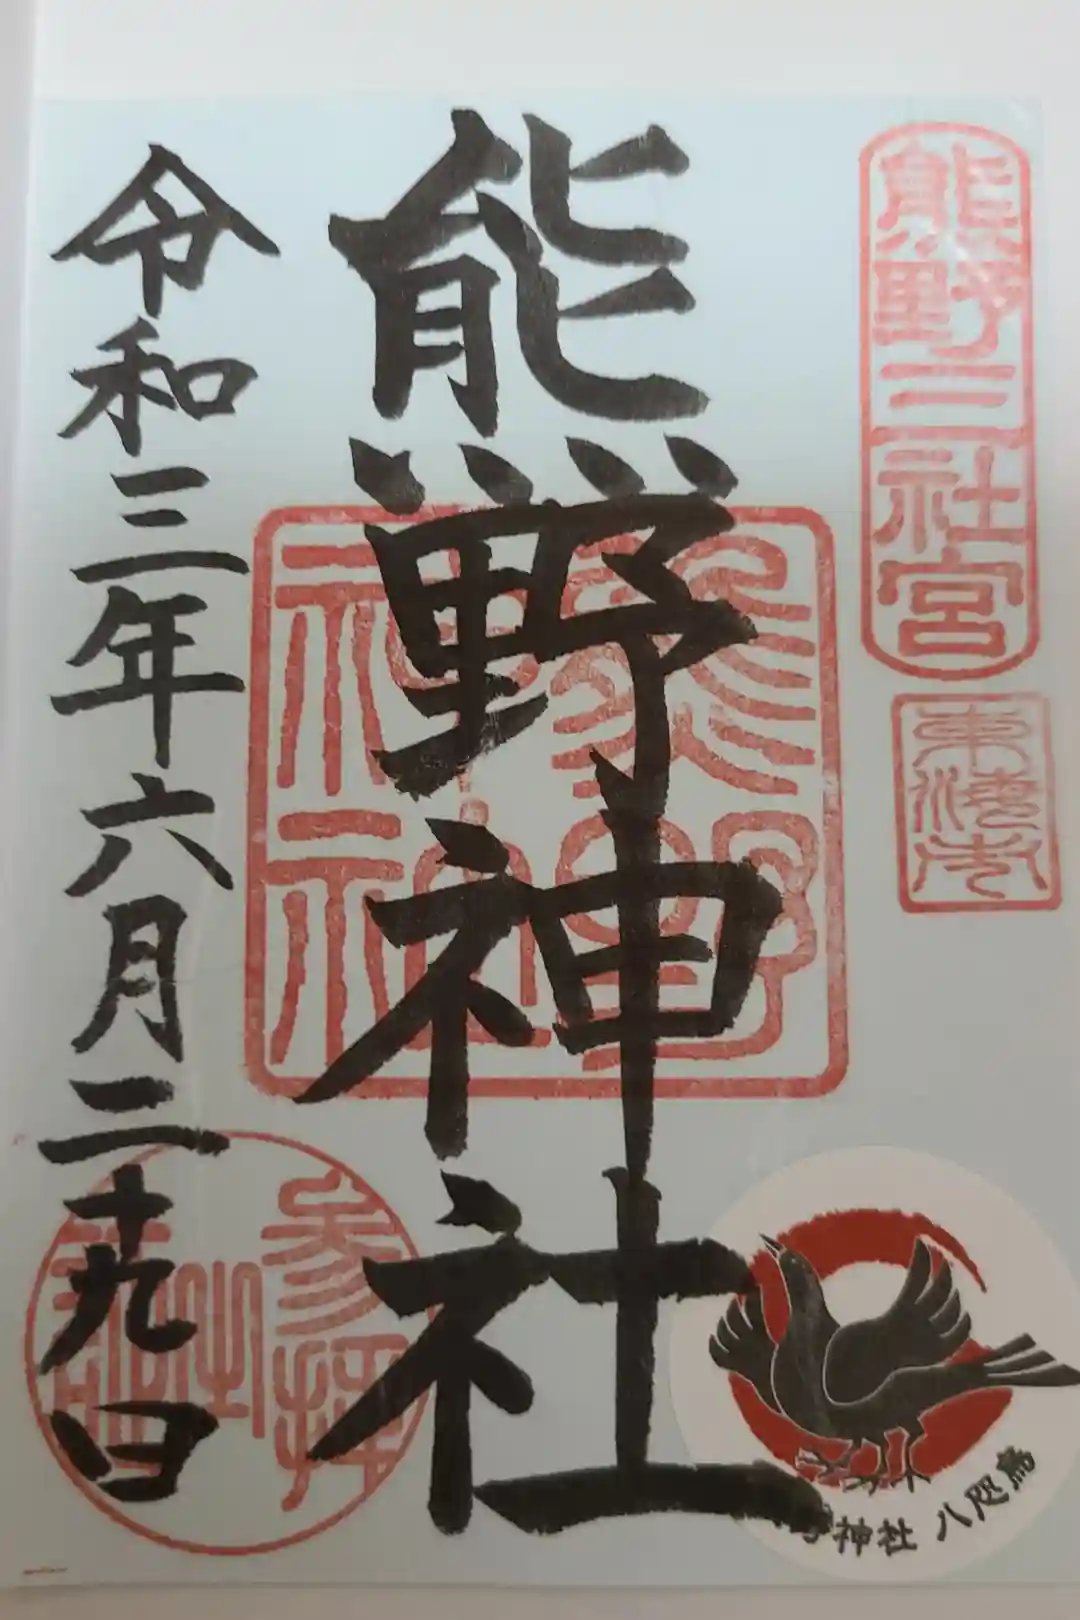 熊野三社宮
東海市
熊野神社
熊野
神社
令和三年六月二十九日
参拝
之
神社 八咫烏